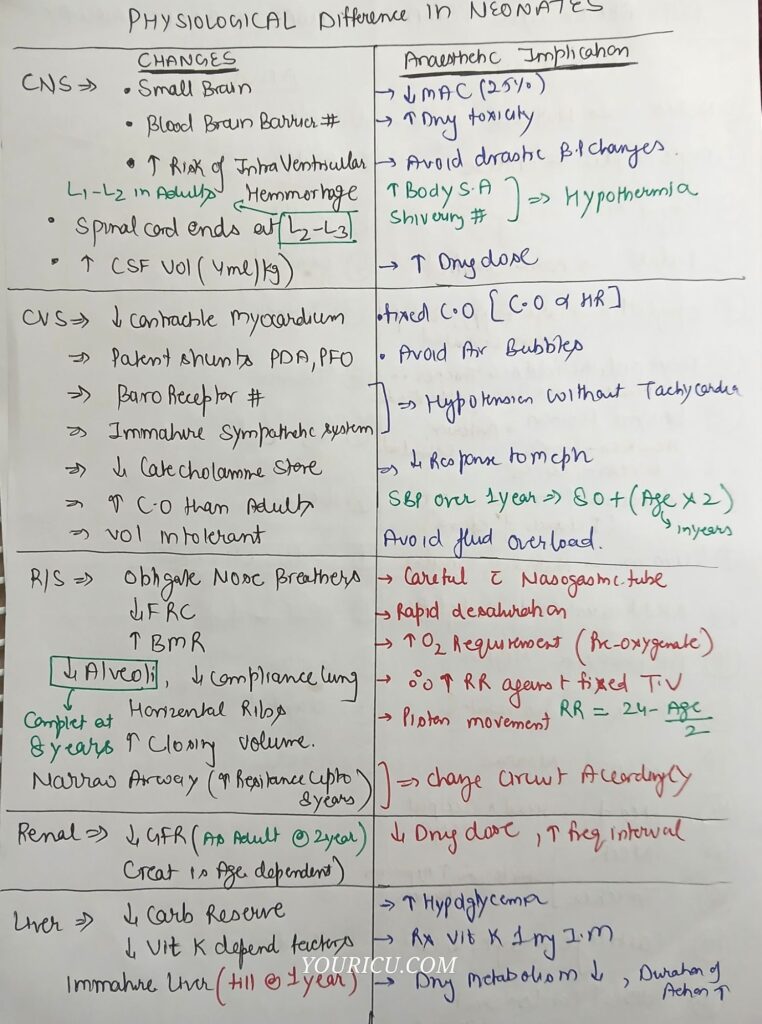 PHYSIOLOGICAL Difference in NEONATES
CHANGES
Anaesthetic Implication
CNS ⇒ • Small Brain → ↓ MAC (25%)
• Blood Brain Barrier # → ↑ Drug toxicity
• ↑ Risk of IntraVentricular Hemmorhage → Avoid drastic B.P changes.
L1-L2 in Adults
↑ Body S.A
Shivering # ] ⇒ Hypothermia
• Spinal cord ends at L2-L3
• ↑ CSF Vol (4ml/kg) → ↑ Drug dose
CVS ⇒ ↓ Contractile myocardium • fixed C.O [C.O α HR]
⇒ Patent shunts PDA, PFO • Avoid Air Bubbles
⇒ BaroReceptor #
⇒ Immature Sympathetic system ] ⇒ Hypotension without Tachycardia
⇒ ↓ Catecholamine Store ⇒ ↓ Response to meph
⇒ ↑ C.O than Adult
SBP over 1 year ⇒ 80 + (Age x 2)
in years
⇒ Vol intolerant Avoid fluid overload.
R/S ⇒ Obligate Nose Breathers → Careful c̄ Nasogastric tube
↓ FRC → Rapid desaturation
↑ BMR → ↑ O2 Requirement (Pre-oxygenate)
↓ Alveoli, ↓ compliance lung → ∴ ↑ RR against fixed T.V
Complet at 8 years
Horizental Ribs → Piston movement RR = 24 - Age/2
↑ Closing volume.
Narrao Airway (↑ Resistance upto 8 years) ] ⇒ Change Circuit Accordingly
Renal ⇒ ↓ GFR (As Adult @ 2 year) ↓ Drug dose, ↑ freq interval
Creat is Age dependent)
Liver ⇒ ↓ Carb Reserve → ↑ Hypoglycemia
↓ Vit K depend factors → Rx Vit K 1 mg I.M
YOURICU.COM
Immature Liver (till @ 1 year) → Drug metabolism ↓, Duration of Action ↑